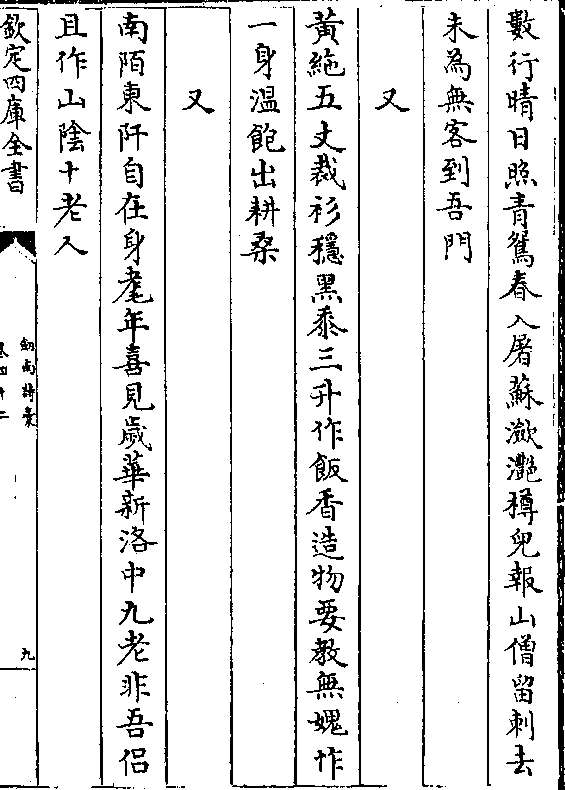 數行晴日照青鴛春入屠蘇瀲灔樽兒報山僧留刺去
未為無客到吾門
又
黃絁五丈裁衫穩黑黍三升作飯香造物要教無媿怍
一身溫飽出耕桑
又
南陌東阡自在身耄年喜見歲華新洛中九老非吾侣
且作山陰十老人
欽定四庫全書
劍南詩稾
卷四十二
九